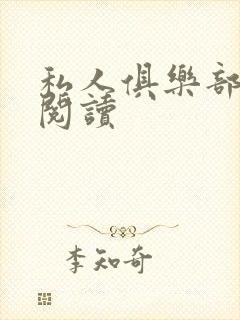 私人俱樂部
閱讀
李知奇